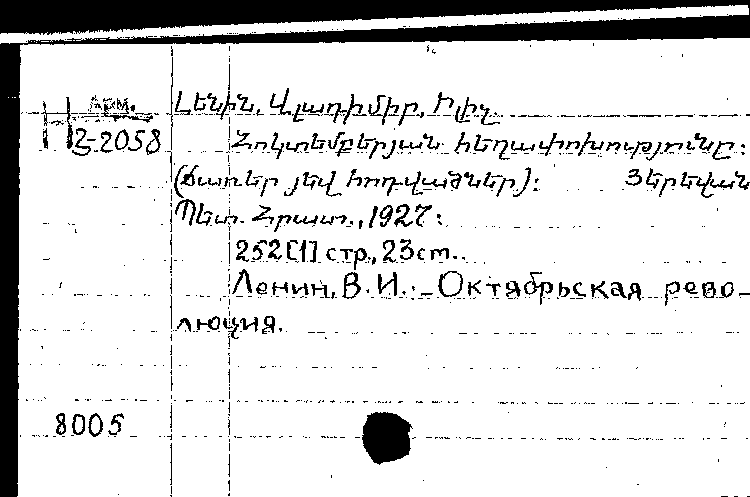 Арм.
Н Հ-2058
Լենին, Վլադիմիր, Իլիչ
Հոկտեմբերյան հեղափոխությունը:
(Ճառեր յեվ հոդվածներ): Յերեվան
Պետ. Հրատ., 1927:
252[1] стр., 23см.
Ленин, В.И. - Октябрьская рево-
люция.
8005